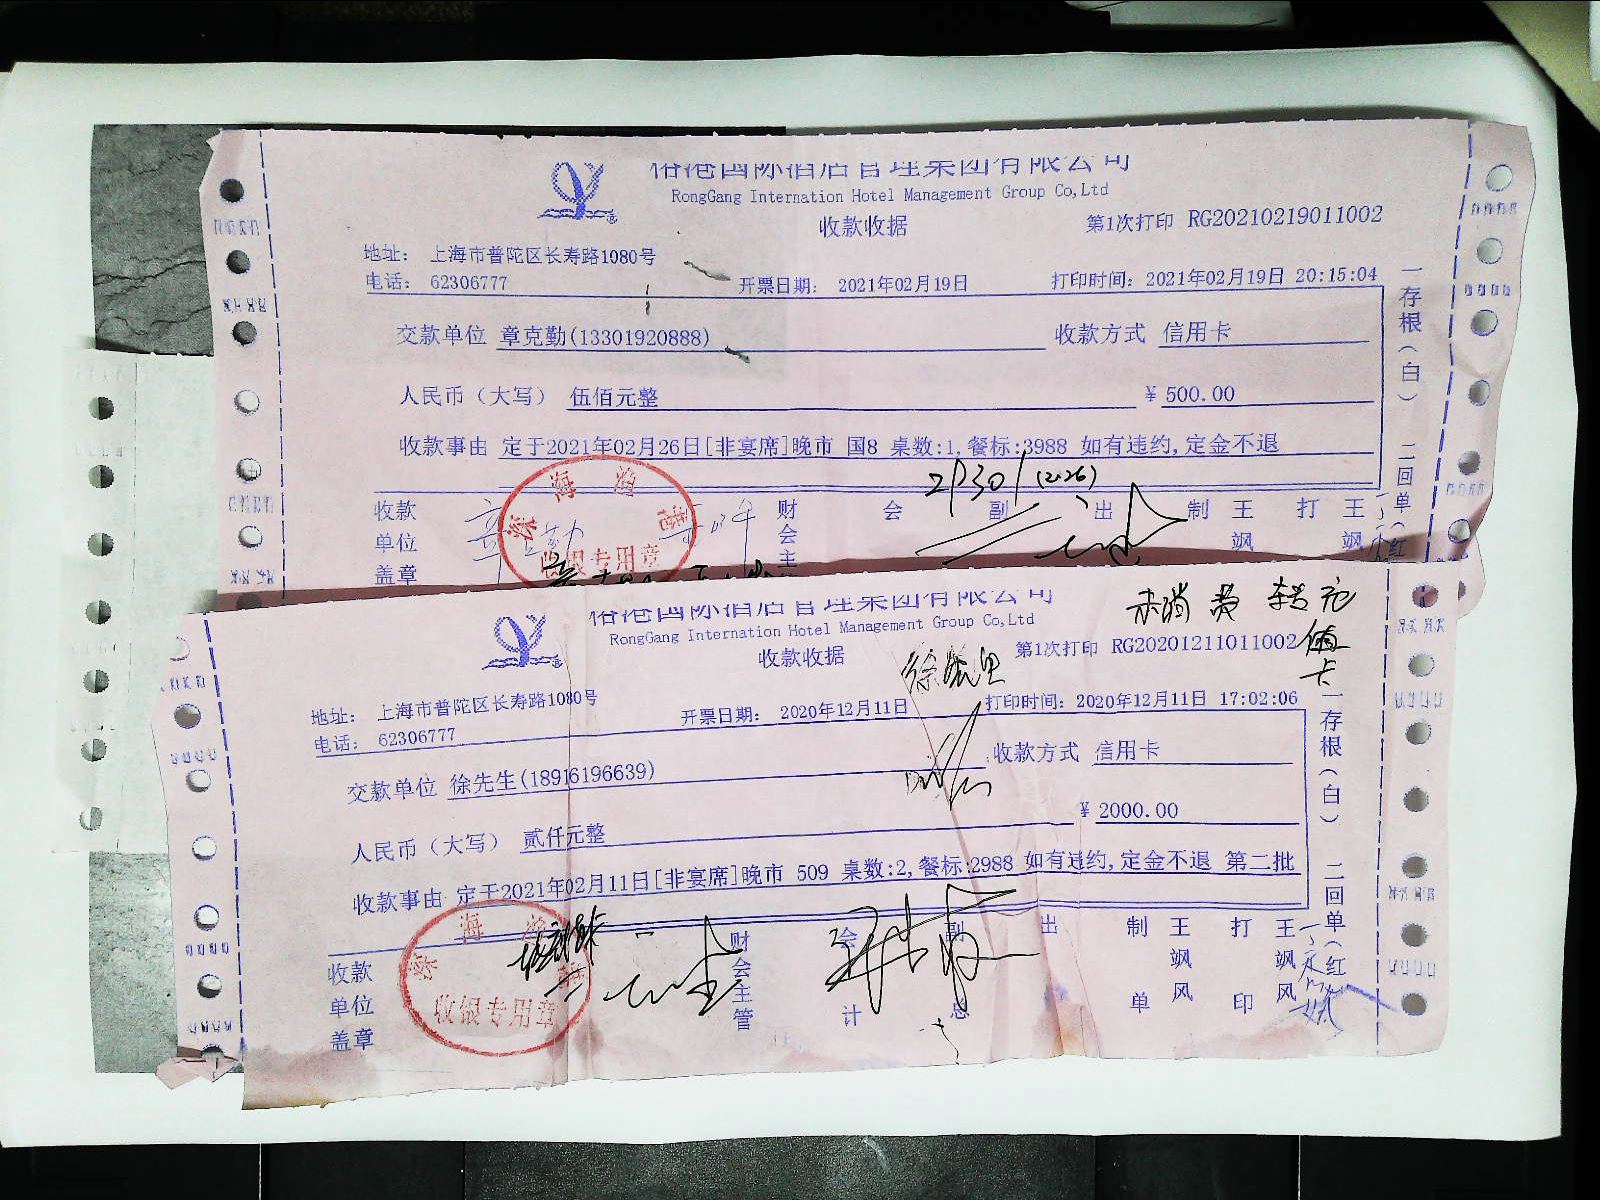 国际酒店管理集团有限公司
RongGang Internation Hotel Management Group Co,Ltd
收款收据
第1次打印 RG20210219011002
地址： 上海市普陀区长寿路1080号
电话： 62306777
开票日期： 2021年02月19日
打印时间：2021年02月19日 20:15:04
交款单位 章克勤(13301920888)
收款方式 信用卡
人民币（大写） 伍佰元整
¥ 500.00
收款事由 定于2021年02月26日[非宴席]晚市 国8 桌数:1,餐标:3988 如有违约,定金不退
(2.26)
收款单位盖章
深海渔港
收银专用章
财会主
会
副
出
制
王飒
打
王飒
一存根(白) 二回单(红
国际酒店管理集团有限公司
RongGang Internation Hotel Management Group Co,Ltd
收款收据
第1次打印 RG20201211011002
地址： 上海市普陀区长寿路1080号
电话： 62306777
开票日期： 2020年12月11日
打印时间：2020年12月11日 17:02:06
交款单位 徐先生(18916196639)
收款方式 信用卡
人民币（大写） 贰仟元整
¥ 2000.00
收款事由 定于2021年02月11日[非宴席]晚市 509 桌数:2,餐标:2988 如有违约,定金不退 第二批
收款单位盖章
深海渔港
收银专用章
财会主管
会计
副总
出
制单
王飒风
打印
王飒风
一存根(白) 二回单(红